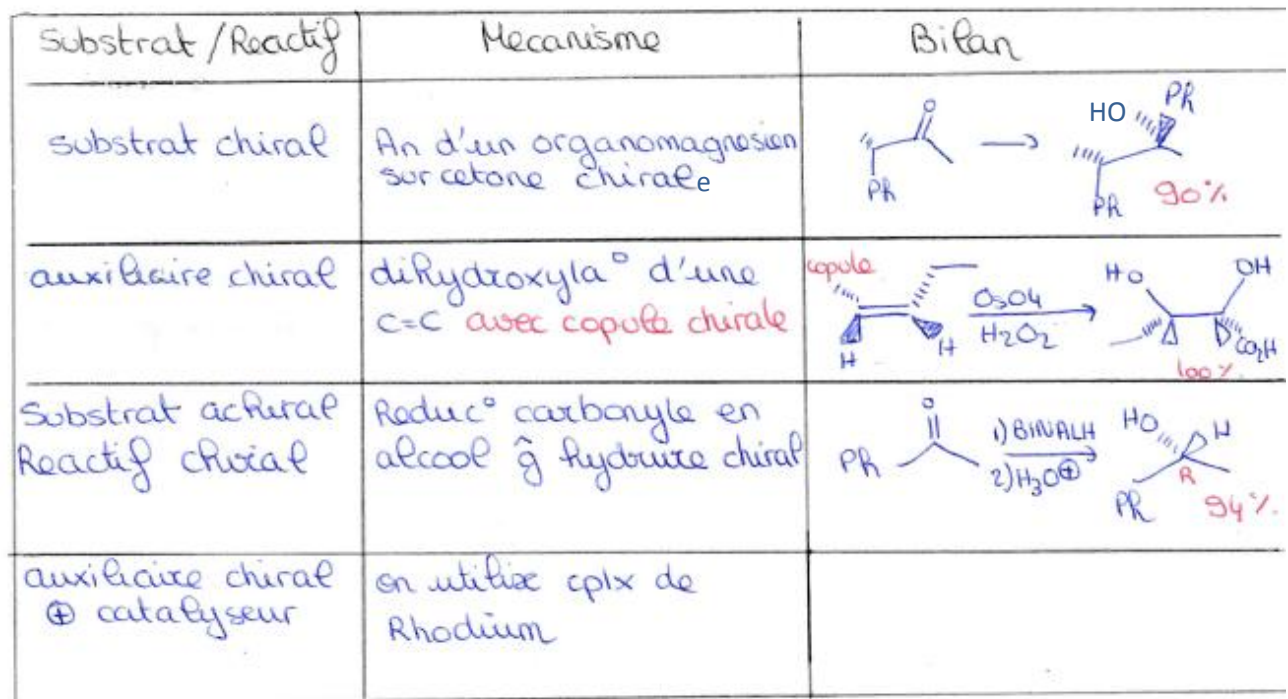 Substrat / Reactif
Mecanisme
Bilan
substrat chiral
An d'un organomagnesien
sur cetone chirale
O
Ph
HO
Ph
Ph
90%
auxiliaire chiral
dihydroxyla° d'une
C=C avec copule chirale
copule
H
H
OsO4
H2O2
HO
OH
CO2H
100%
Substrat achiral
Reactif chiral
Reduc° carbonyle en
alcool ĝ hydrure chiral
O
Ph
1) BINALH
2) H3O⊕
HO
H
R
Ph
94%
auxiliaire chiral
⊕ catalyseur
on utilise cplx de
Rhodium